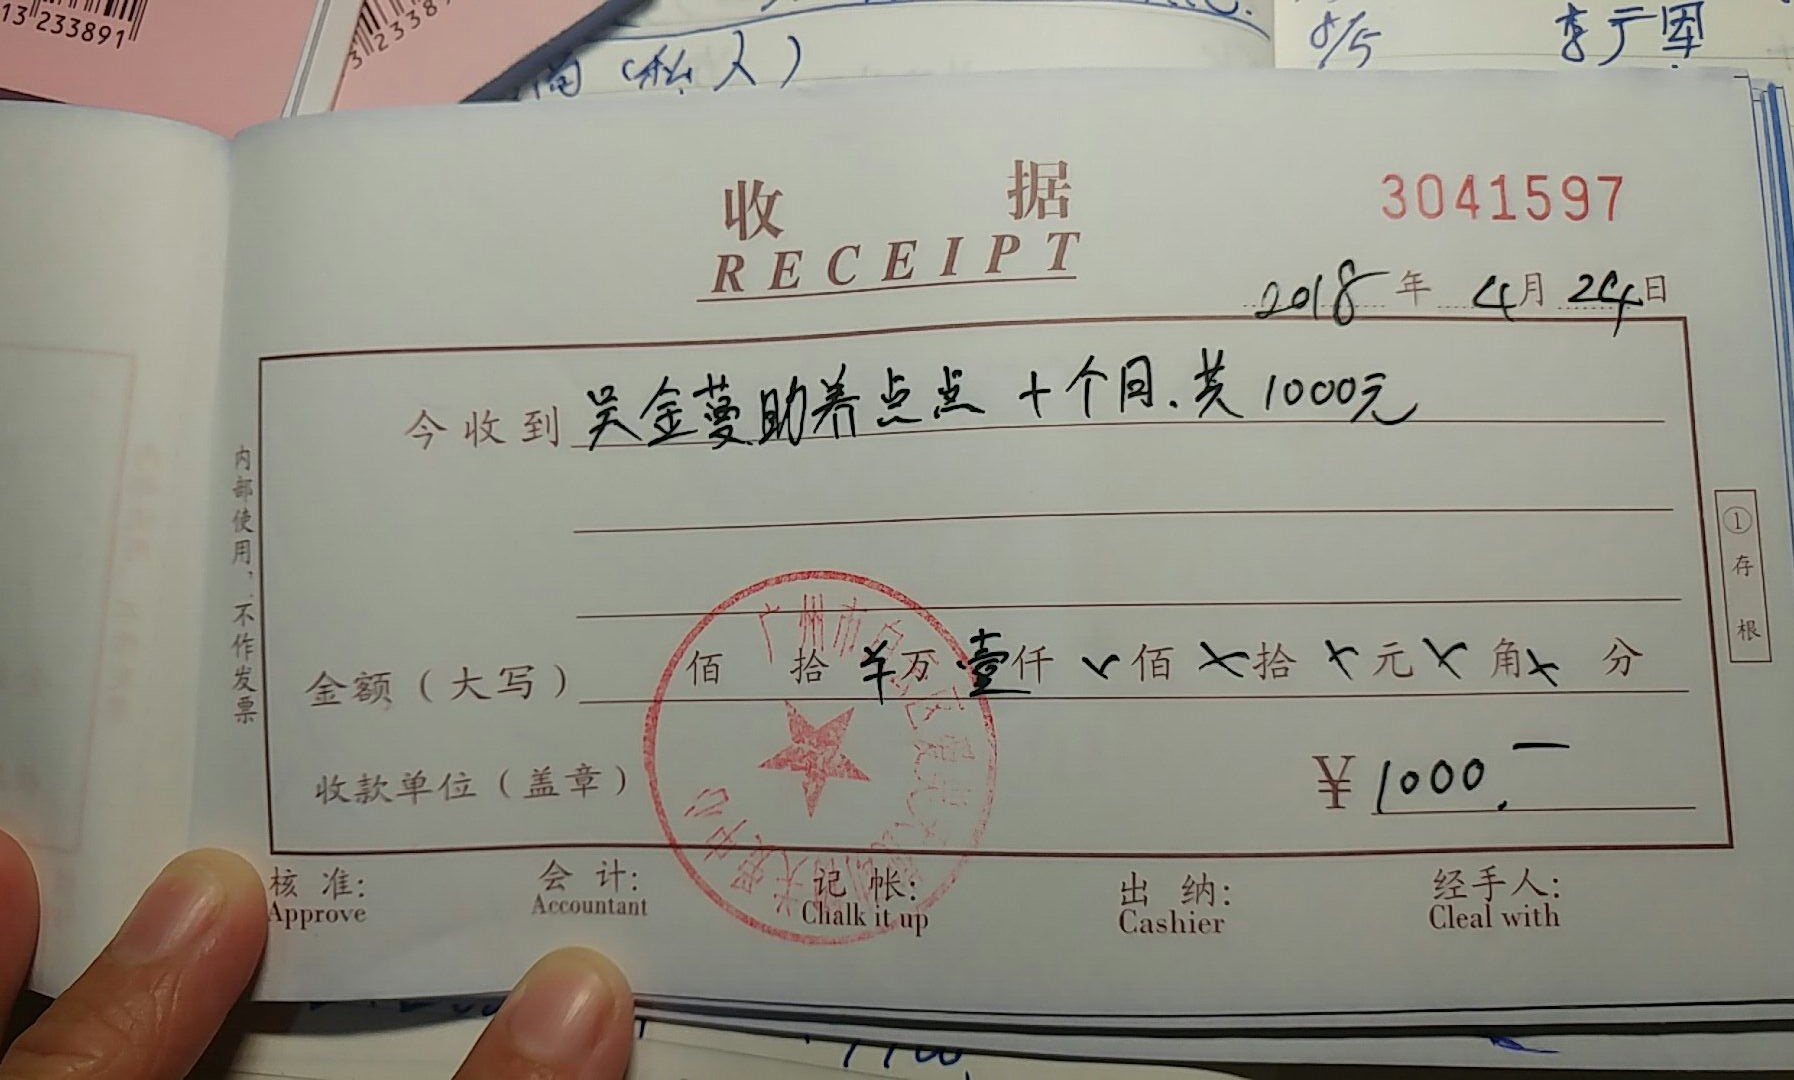 13 233891
8/5 李广图
(私人)
收 据
RECEIPT
3041597
2018年 4月 24日
今收到 吴金蔓助养点点 十个月.共1000元
内部使用,不作发票
① 存根
金额(大写) 佰 拾 ¥万 壹仟 ×佰 ×拾 ×元 ×角 × 分
收款单位(盖章) ¥1000.—
广州市
核 准: 会 计: 记 帐: 出 纳: 经手人:
Approve Accountant Chalk it up Cashier Cleal with